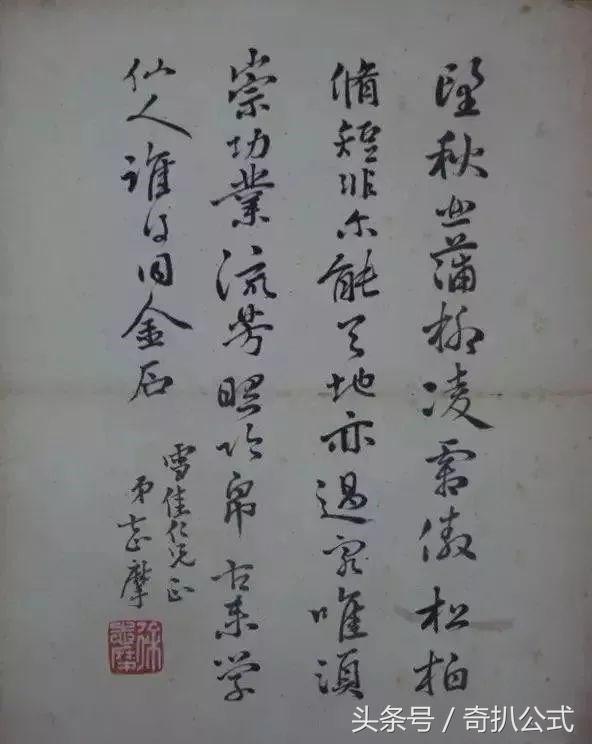 望秋悲蒲柳凌霜傲松柏
脩短非尔能天地亦過客唯須
崇功業流芳照竹帛古来学
仙人誰得同金石
雪佳仁兄正
弟志摩
徐志摩
头条号 / 奇扒公式